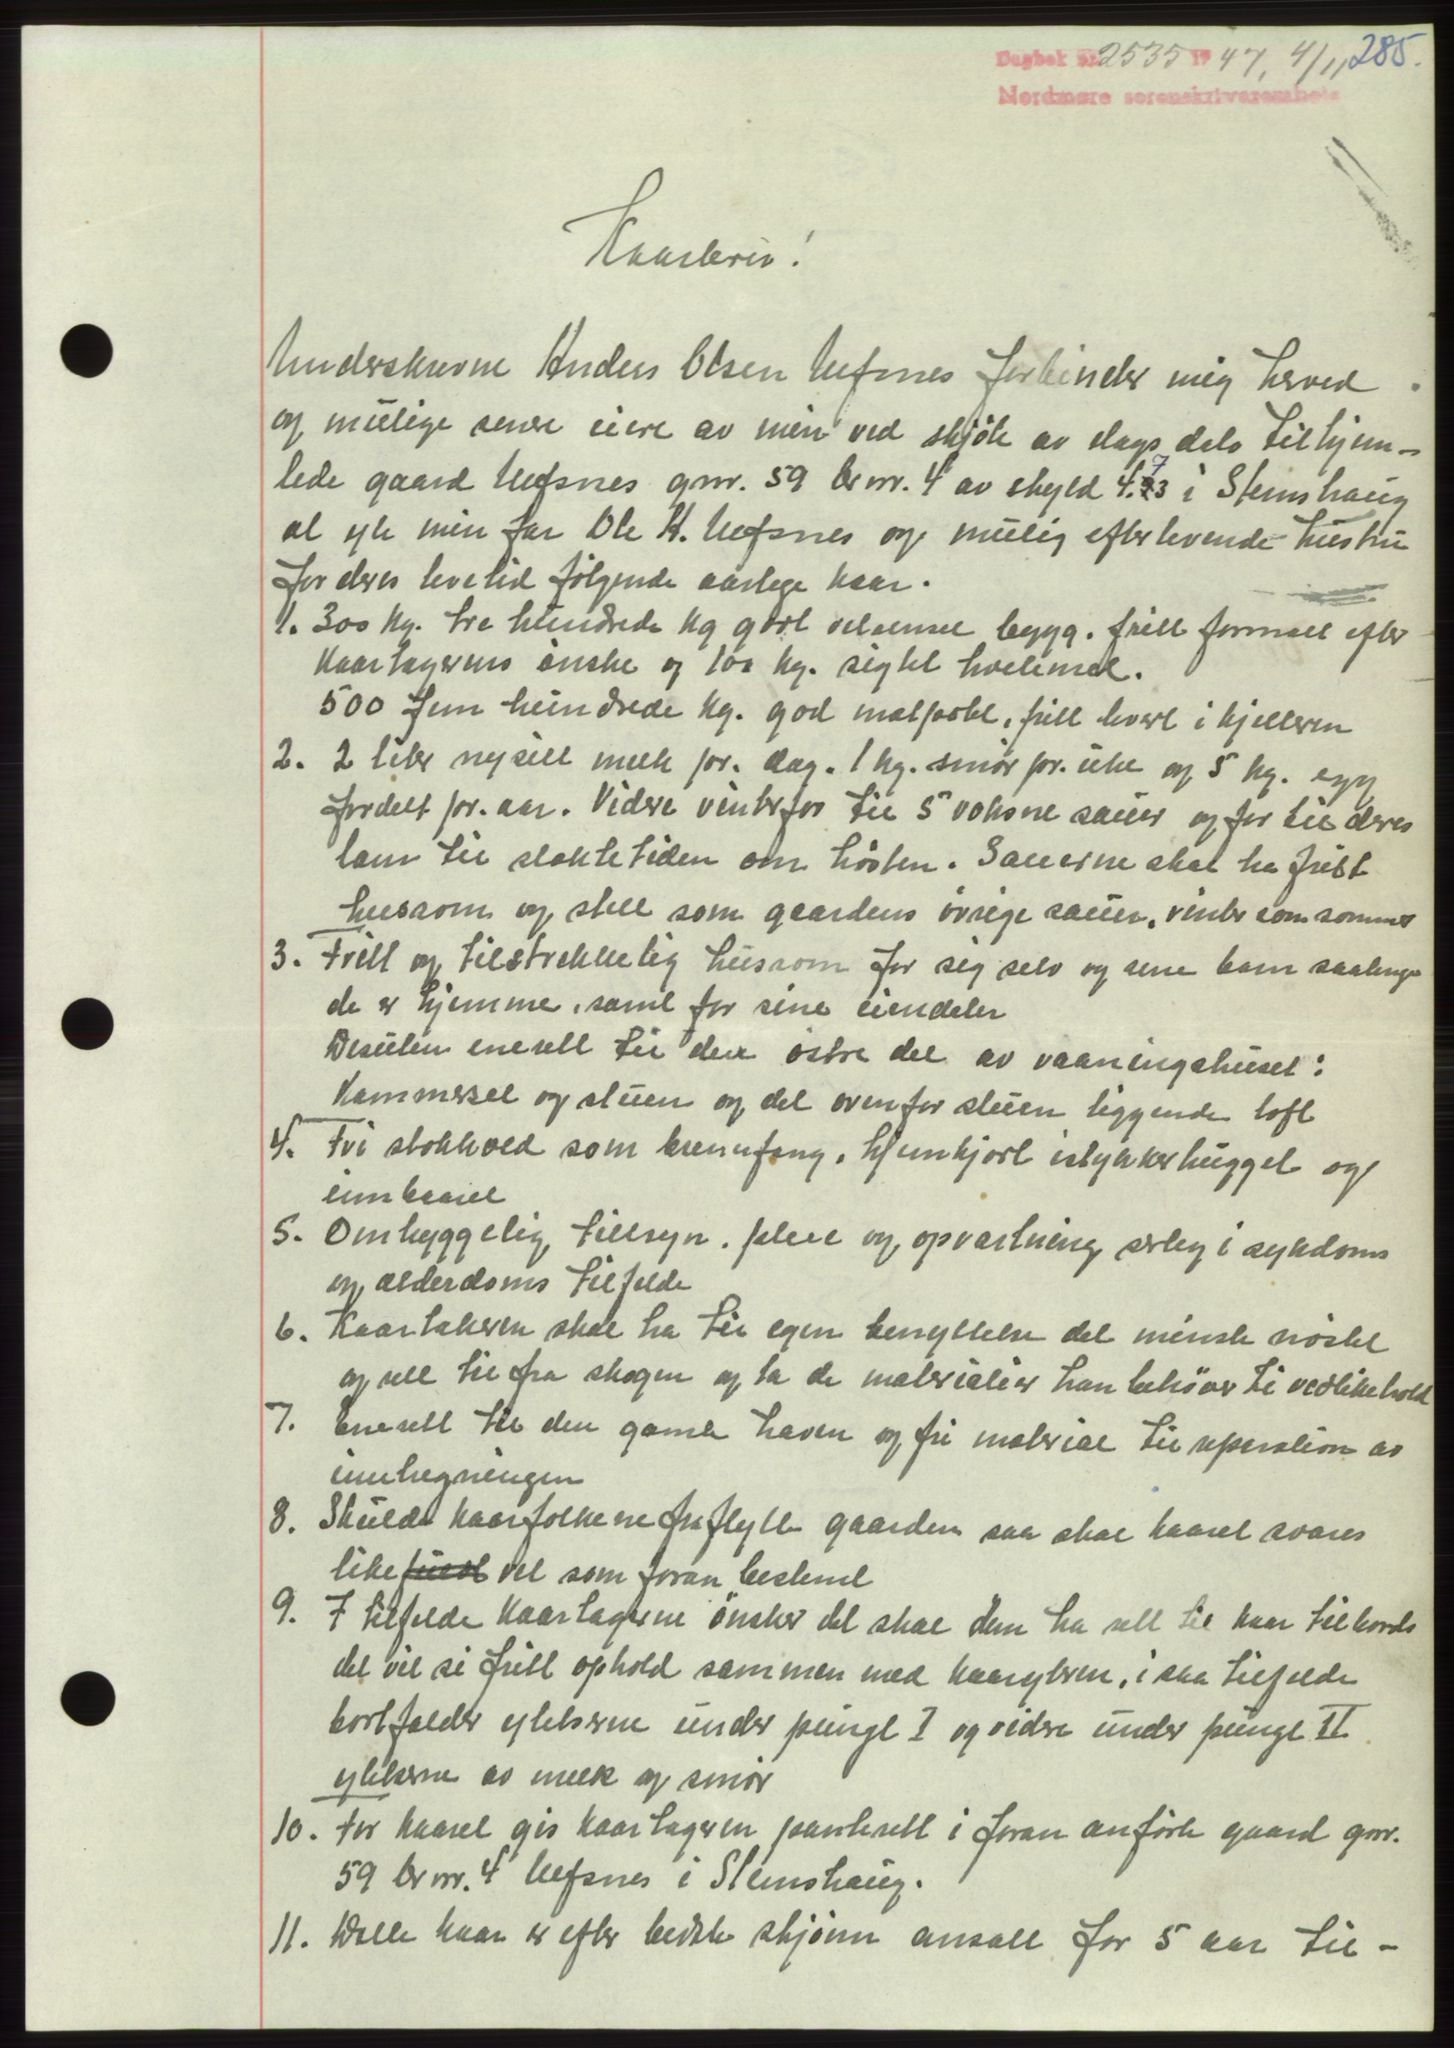 Dagbok nr. 2535 19 47, 4/11 285.
Nordmøre sorenskriverembete
Kaarbrev!
Underskrevne Anders Olsen Ulfsnes forbinder mig herved
og mulige senere eiere av min ved skjøte av dags dato tilhjem-
lede gaard Ulfsnes gnr. 59 brnr. 4 av skyld 4.73 i Stemshaug
at yte min far Ole A. Ulfsnes og mulig efterlevende hustru
for deres levetid følgende aarlige kaar.
1. 300 kg. tre hundrede kg godt velsemsel bygg. fritt formalt efter
kaartagerens ønske og 100 kg. sigtet hvetemel.
500 fem hundrede kg. god matpotet, fritt levert i kjelleren
2. 2 liter nysilt melk pr. dag. 1 kg. smør pr. uke og 5 kg. egg
fordelt pr. aar. Videre vinterfor til 5 voksne sauer og for til deres
lam til slaktetiden om høsten. Sauerne skal ha frit
husrom og stell som gaardens øvrige sauer, vinter som sommer
3. Fritt og tilstrekkelig husrom for sig selv og sine barn saalenge
de er hjemme, samt for sine eiendeler
Desuten enerett til den østre del av vaaningshuset:
Kammerset og stuen og det ovenfor stuen liggende loft
4. Fri stokkved som brennfang, hjemkjørt istykkerhugget og
innbaaret
5. Omhyggelig tillsyn, pleie og opvartning serlig i sykdoms
og alderdoms tilfelde
6. Kaartakeren skal ha til egen benyttelse det minste nøstet
og rett til fra skogen og ta de materialier han behøver til vedlikehold
7. Enerett til den gamle haven og fri material til reperation av
innhegningen
8. Skulde kaarfolkene fraflytte gaarden saa skal kaaret svares
like vel som foran bestemt
9. I tilfelde kaartagerne ønsker det skal dem ha rett til kaar tilbords
det vil si fritt ophold sammen med kaaryteren, i saa tilfelde
bortfalder ytelserne under pungt I og videre under pungt II
ytelserne av melk og smør
10. For kaaret gis kaartageren panterett i foran anførte gaard gnr.
59 brnr. 4 Ulfsnes i Stemshaug.
11. Dette kaar er efter bedste skjønn ansatt for 5 aar til -